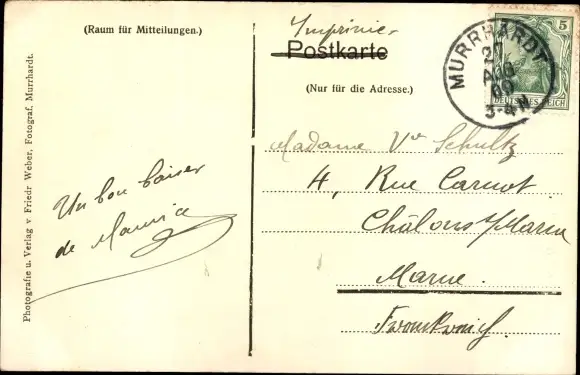 (Raum für Mitteilungen.)
Imprimé
Postkarte
(Nur für die Adresse.)
5
DEUTSCHES REICH
MURRHARDT
27
AUG
09
3-4N
Photografie u. Verlag v Friedr Weber, Fotograf, Murrhardt.
Un bon baiser
de Maurice
Madame Vve Schultz
4, Rue Carnot
Châlons s/Marne
Marne.
Frankreich